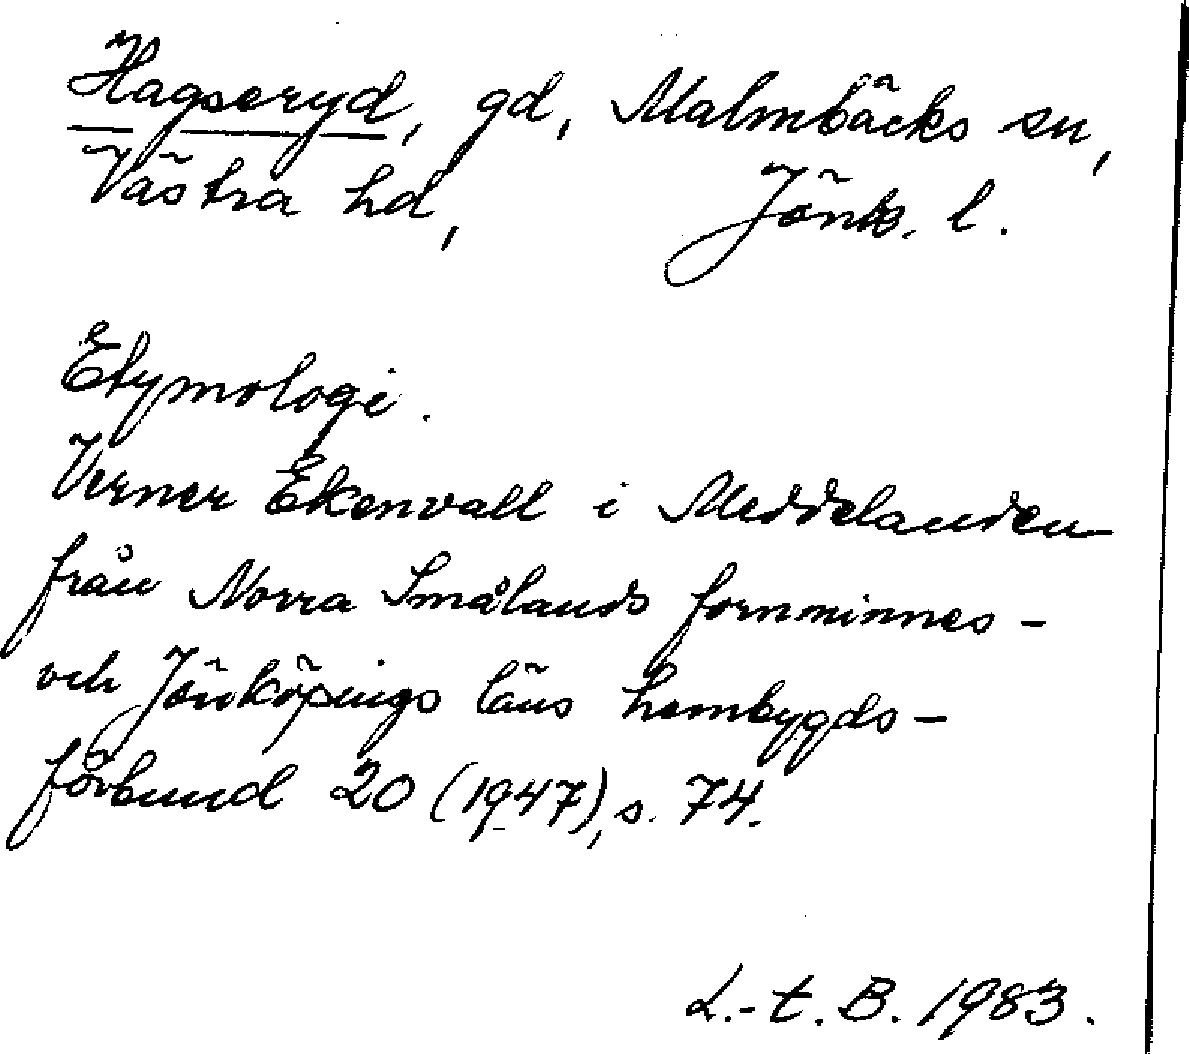 Hagseryd, gd, Malmbäcks sn,
Västra hd, Jönk. l.
Etymologi.
Verner Ekenvall i Meddelanden
från Norra Smålands fornminnes-
och Jönköpings läns hembygds-
förbund 20 (1947), s. 74.
L.-t. B. 1983.